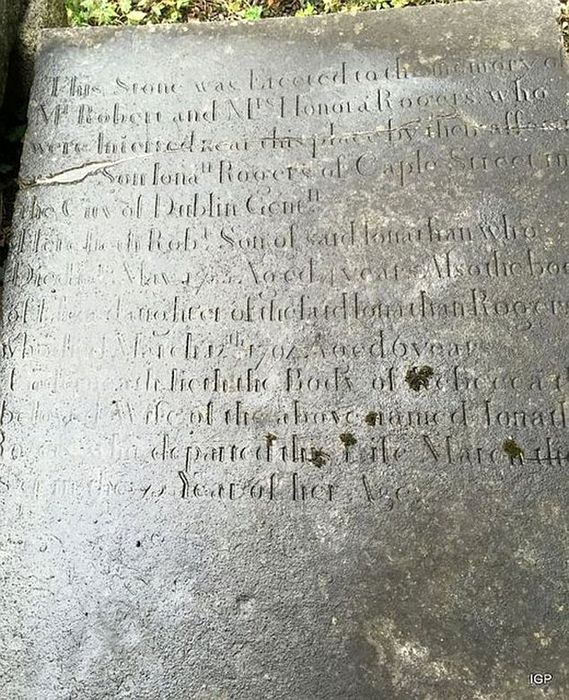 This Stone was Erected to the memory of
Mr Robert and Mrs Honora Rogers, who
were Interred near this place by their affec
Son Ionan Rogers of Caple Street in
the City of Dublin Gentn
Here lieth Robt Son of said Ionathan who
Died May Aged years Also the bod
of daughter of the said Ionathan Rogers
who died March 12th Aged 6 years
Underneath lieth the Body of Rebecca th
beloved Wife of the above named Ionath
Rogers who departed this Life March the
in the Year of her Age
IGP